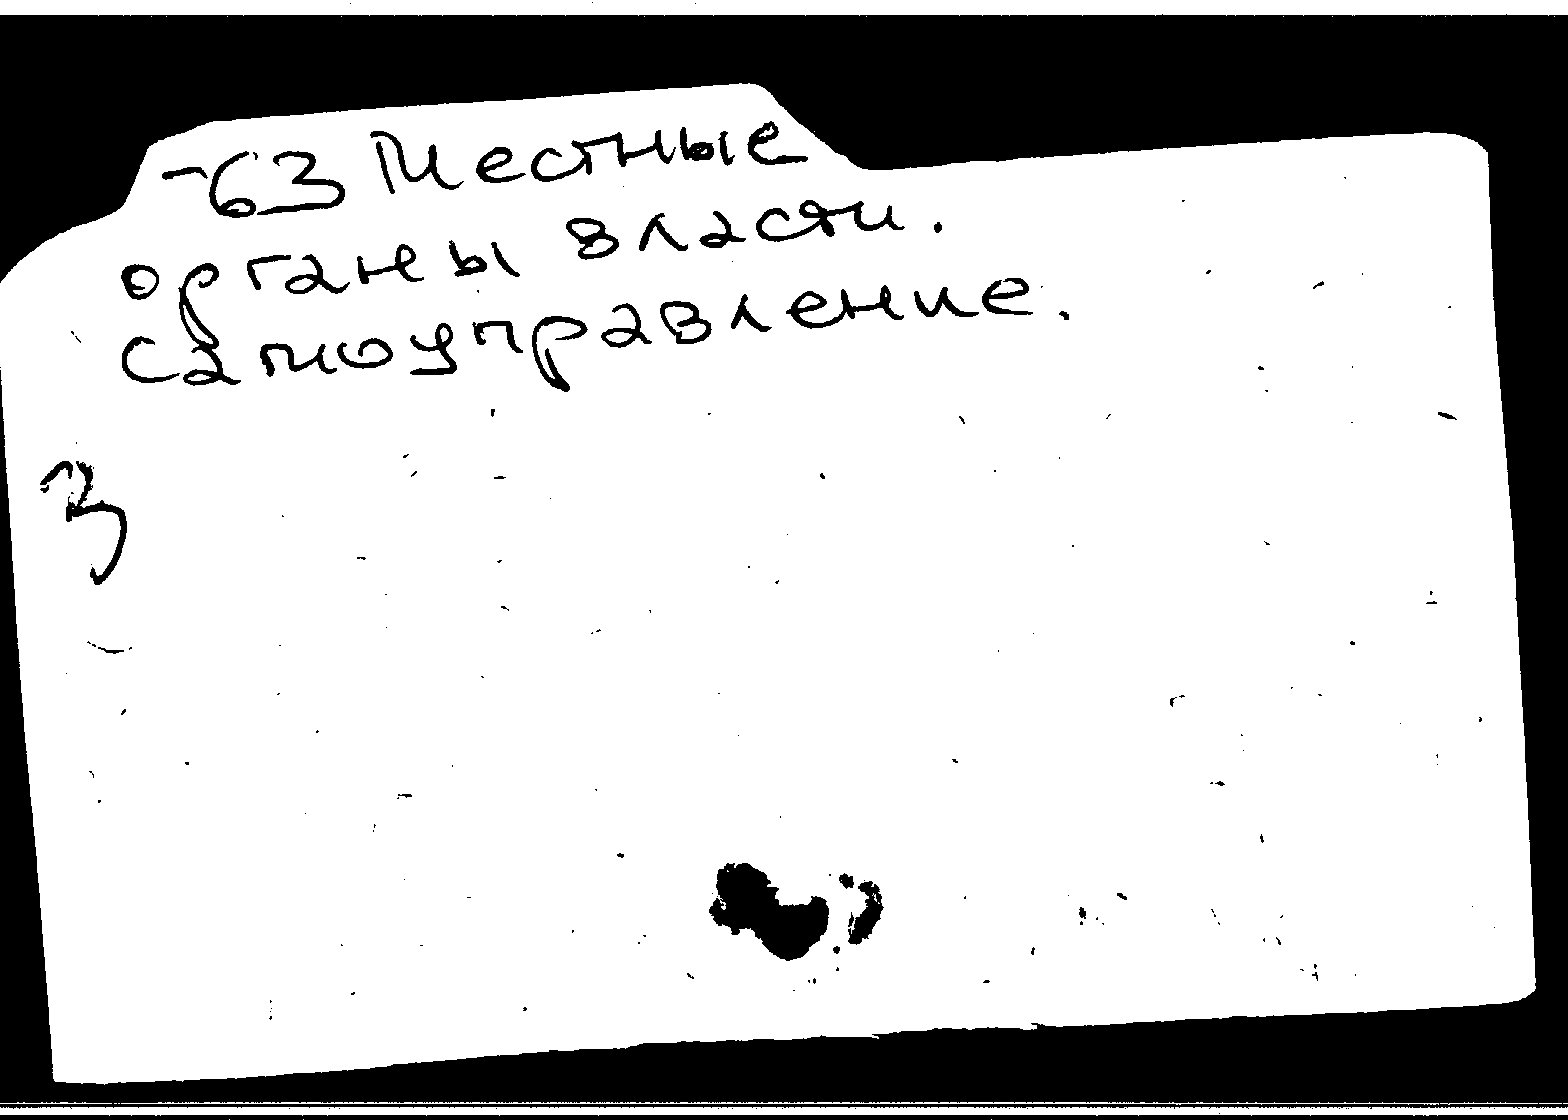 -63 Местные
органы власти.
Самоуправление.
3